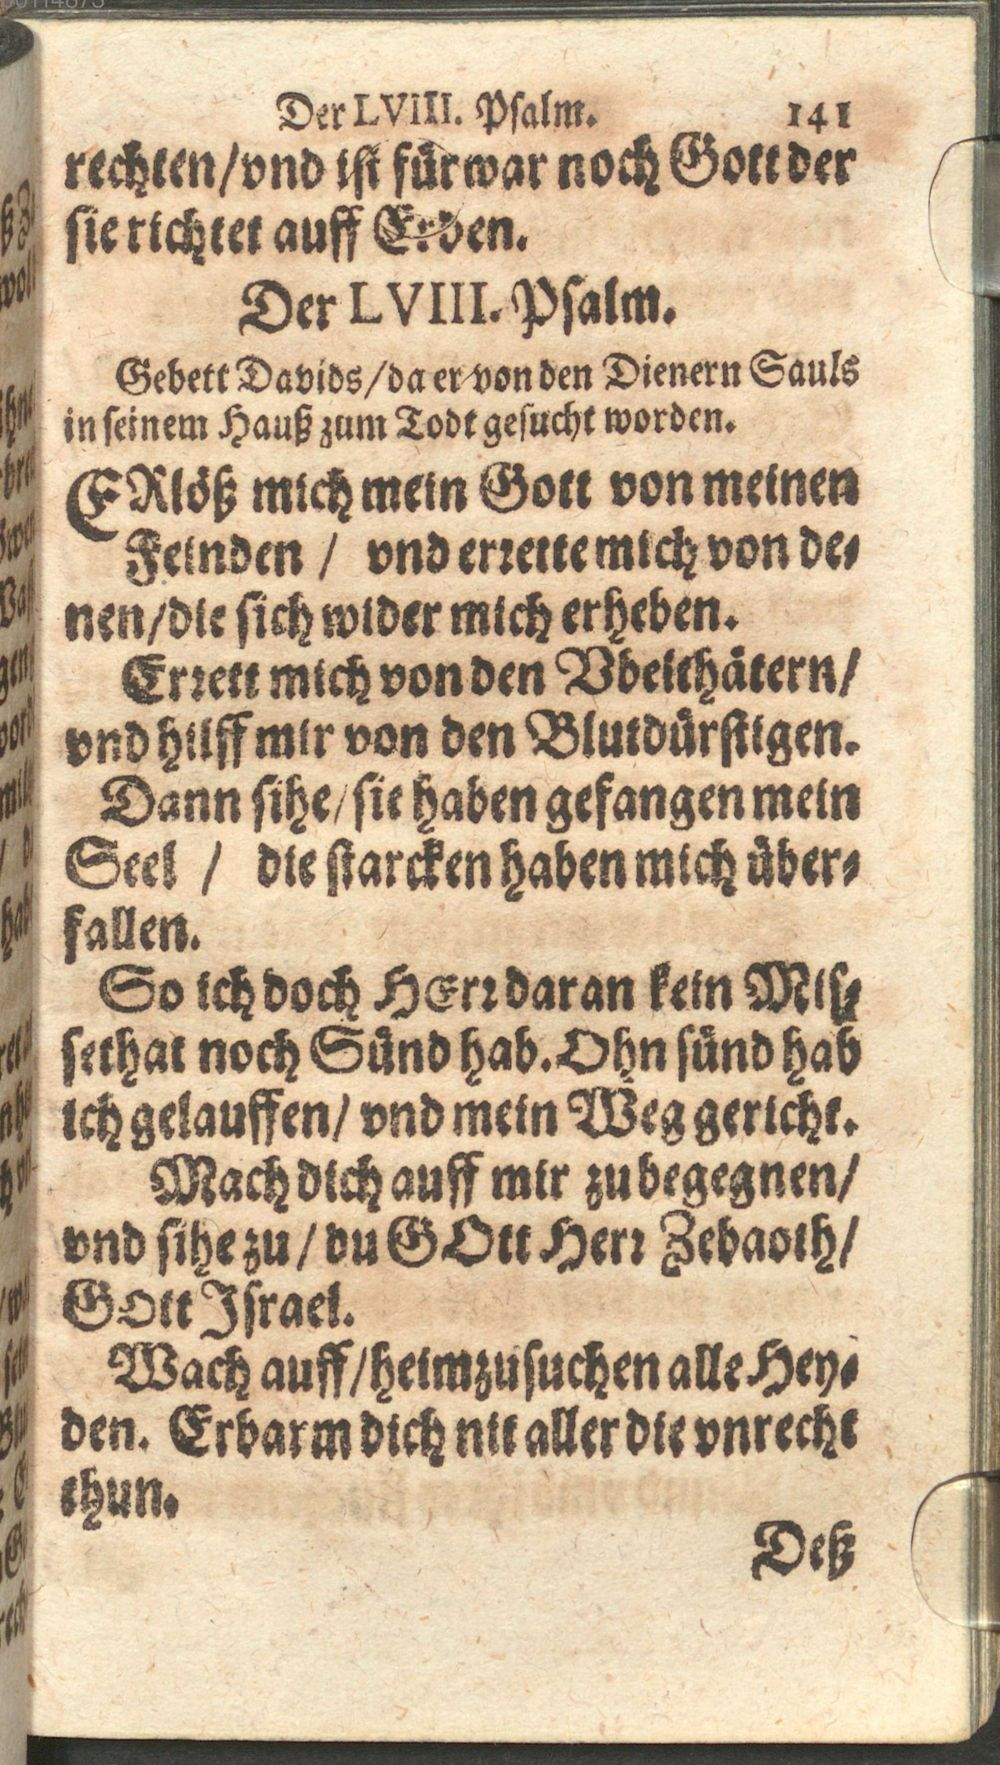 Der LVIII. Psalm. 141
rechten/vnd ist fürwar noch Gott der
sie richtet auff Erden.
Der LVIII. Psalm.
Gebett Davids/da er von den Dienern Sauls
in seinem Hauß zum Todt gesucht worden.
ERlöß mich mein Gott von meinen
Feinden / vnd errette mich von de-
nen/die sich wider mich erheben.
Errett mich von den Vbelthätern/
vnd hilff mir von den Blutdürstigen.
Dann sihe/sie haben gefangen mein
Seel / die starcken haben mich über-
fallen.
So ich doch HErr daran kein Mis-
sethat noch Sünd hab. Ohn sünd hab
ich gelauffen/ vnd mein Weg gericht.
Mach dich auff mir zu begegnen/
vnd sihe zu/ du GOtt Herr Zebaoth/
GOtt Israel.
Wach auff/heimzusuchen alle Hey-
den. Erbarm dich nit aller die vnrecht
thun.
Deß